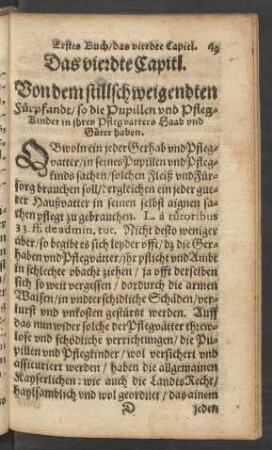 Erstes Buch/das vierdte Capitl. 49
Das vierdte Capitl.
Von dem stillschweigendten
Fürpfandt/so die Pupillen vnd Pfleg-
Kinder in jhren Pflegvatters Haab vnd
Güter haben.
OBwoln ein jeder Gerhab vnd Pfleg-
vatter/in seines Pupillen vnd Pfleg-
kinds sachen/solchen Fleiß vnd Für-
sorg brauchen soll/dergleichen ein jeder gue-
ter Haußvatter in seinen selbst aignen sa-
chen pflegt zu gebrauchen. L. à tutoribus
33. ff. de admin. tut. Nicht desto weniger
aber/so begibt es sich leyder offt/dz die Ger-
haben vnd Pflegvätter/ihr pflicht vnd Ambt
in schlechte obacht ziehen/ja offt derselben
sich so weit vergessen/dardurch die armen
Waisen/in vndterschidliche Schäden/ver-
lurst vnd vnkosten gestürtzt werden. Auff
das nun wider solche der Pflegvätter threw-
lose vnd schödliche verrichtungen/die Pu-
pillen vnd Pflegkinder/wol versichert vnd
assicuriert werden/haben die allgemainen
Kayserlichen: wie auch die Landts Recht/
haylsamblich vnd wol geordnet/das ainem
D jeden